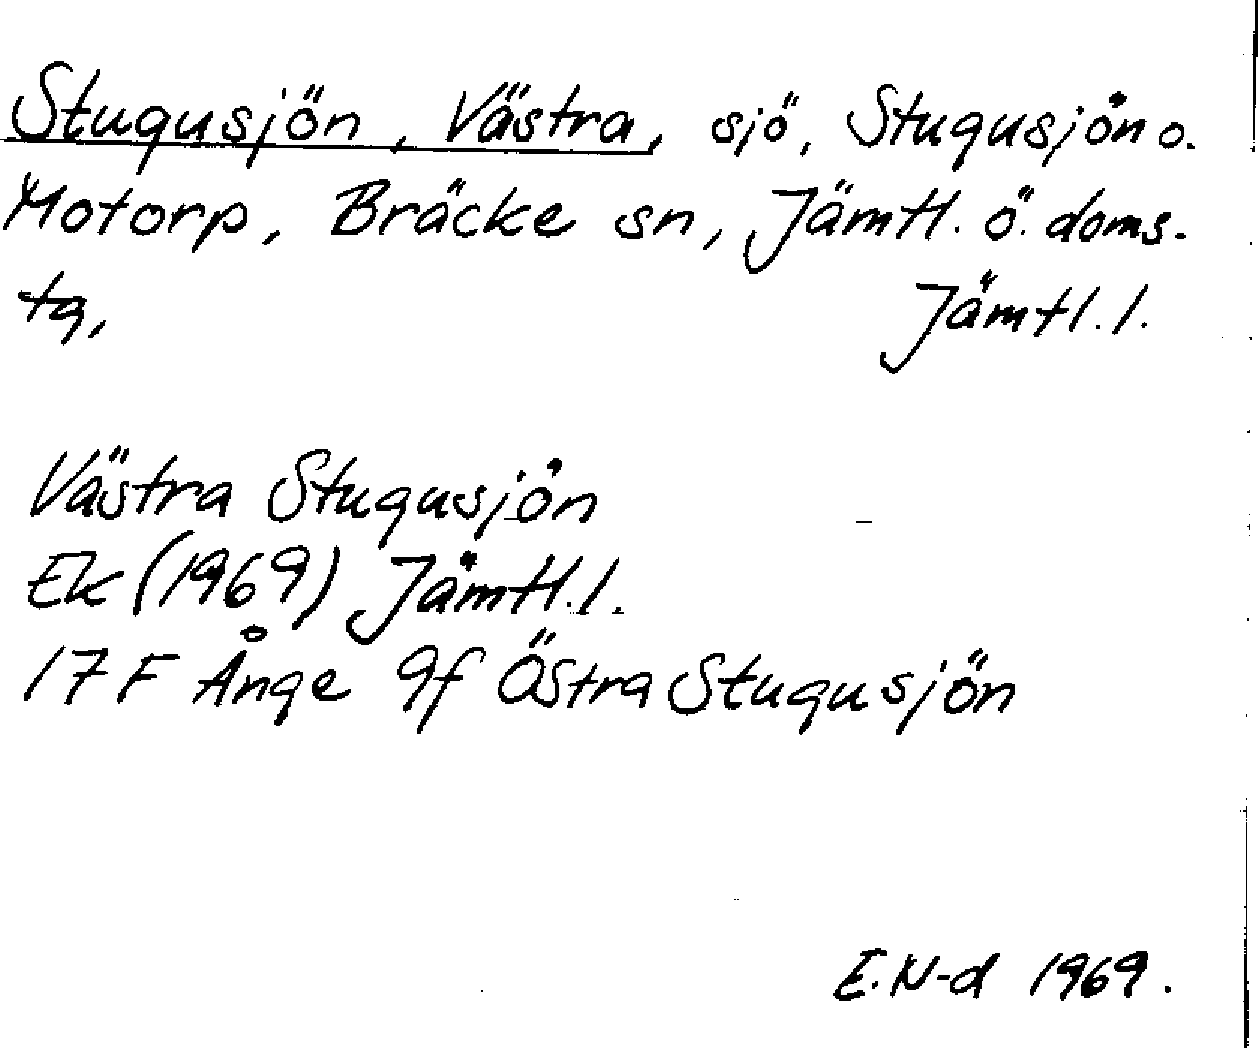 Stugusjön, Västra, sjö, Stugusjön o.
Motorp, Bräcke sn, Jämtl. ö. doms.
tg, Jämtl. l.
Västra Stugusjön
Ek (1969) Jämtl. l.
17 F Ånge 9f Östra Stugusjön
E. N-d 1969.